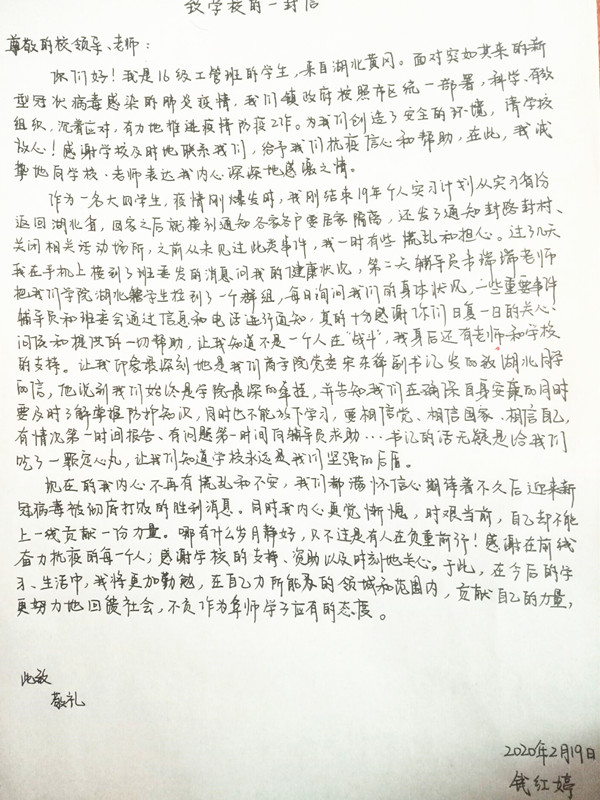 致学校的一封信
尊敬的校领导、老师：
你们好！我是16级工管班的学生，来自湖北黄冈。面对突如其来的新
型冠状病毒感染的肺炎疫情，我们镇政府按照市区统一部署，科学、有效
组织，沉着应对，有力地推进疫情防疫工作。为我们创造了安全的环境，请学校
放心！感谢学校及时地联系我们，给予我们抗疫信心和帮助，在此，我诚
挚地向学校、老师表达我内心深深地感激之情。
作为一名大四学生，疫情刚爆发时，我刚结束19年个人实习计划从实习省份
返回湖北省，回家之后就接到通知各家各户要居家隔离，还发了通知封路封村、
关闭相关活动场所，之前从未见过此类事件，我一时有些慌乱和担心。过了几天
我在手机上接到了班委发的消息问我的健康状况，第二天辅导员韦瑞瑞老师
把我们学院湖北籍学生拉到了一个群组，每日询问我们的身体状况，一些重要事件
辅导员和班委会通过信息和电话进行通知，真的十分感谢你们日复一日的关心、
问候和提供的一切帮助，让我知道不是一个人在"战斗"，我身后还有老师和学校
的支持。让我印象最深刻地是我们商学院党委宋在锋副书记发的致湖北同学
的信，他说到我们始终是学院最深的牵挂，并告知我们在确保自身安康的同时
要及时了解掌握防护知识，同时也不能放下学习，要相信党、相信国家、相信自己，
有情况第一时间报告、有问题第一时间向辅导员求助…书记的话无疑是给我们
吃了一颗定心丸，让我们知道学校永远是我们坚强的后盾。
现在的我内心不再有慌乱和不安，我们都满怀信心期待着不久后迎来新
冠病毒被彻底打败的胜利消息。同时我内心直觉惭愧，时艰当前，自己却不能
上一线贡献一份力量。哪有什么岁月静好，只不过是有人在负重前行！感谢在前线
奋力抗疫的每一个人；感谢学校的支持、资助以及时刻地关心。于此，在今后的学
习、生活中，我将更加勤勉，在自己力所能及的领域和范围内，贡献自己的力量，
更努力地回馈社会，不负作为阜师学子应有的态度。
此致
敬礼
2020年2月19日
钱红婷